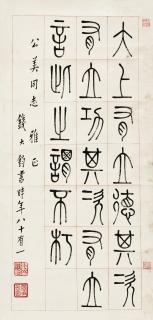 大上有立德其次
有立功其次有立
言此之謂不朽
公美同志雅正
錢大鈞書時年八十有一